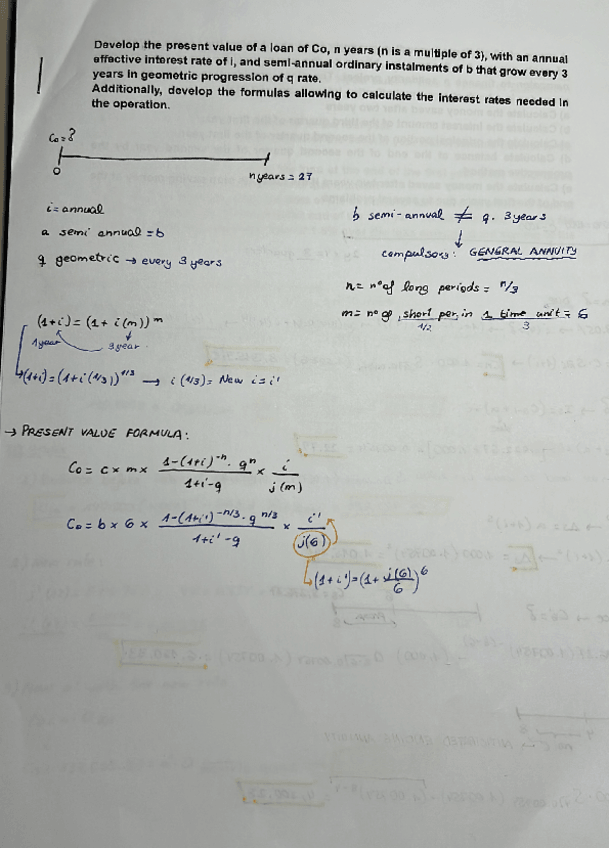 Develop the present value of a loan of Co, n years (n is a multiple of 3), with an annual
effective interest rate of i, and semi-annual ordinary instalments of b that grow every 3
years in geometric progression of q rate.
Additionally, develop the formulas allowing to calculate the interest rates needed in
the operation.
Co=?
0
n years = 27
i = annual
a semi annual = b
q geometric → every 3 years
b semi-annual ≠ q. 3 years
compulsory: GENERAL ANNUITY
n = nº of long periods = n/3
m = nº of short per. in 1 time unit = 6
1/2 3
(1+i) = (1+ i(m))^m
1 year 3 year
(1+i) = (1+i(1/3))^1/3 → i(1/3) = New i = i'
→ PRESENT VALUE FORMULA:
Co = c × m × 1-(1+i)^-n · q^n / 1+i-q × i / j(m)
Co = b × 6 × 1-(1+i')^-n/3 · q^n/3 / 1+i'-q × i' / j(6)
(1+i') = (1+ j(6)/6)^6